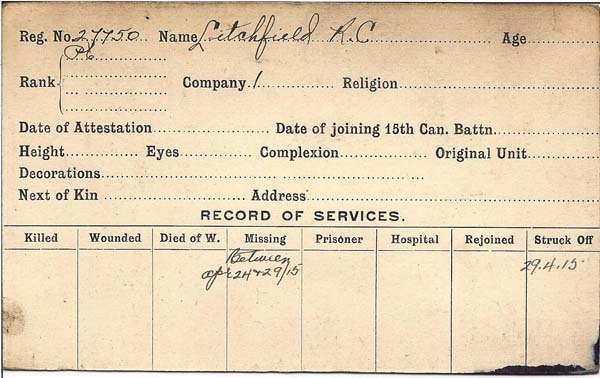 Reg. No. 27750 Name Litchfield R.C Age
Rank Pte Company 1 Religion
Date of Attestation Date of joining 15th Can. Battn.
Height Eyes Complexion Original Unit
Decorations
Next of Kin Address
RECORD OF SERVICES.
Killed Wounded Died of W. Missing Prisoner Hospital Rejoined Struck Off
Between
Apr 24 & 29/15 29.4.15